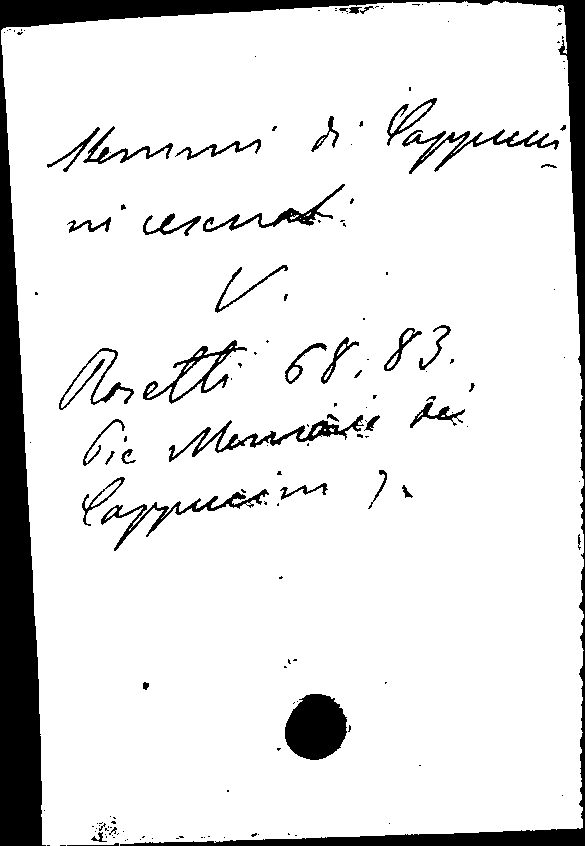 Memmi di Cappucci
ni cesenati.
V.
Rosetti 68, 83.
Pie Memorie dei
Cappuccini 7.